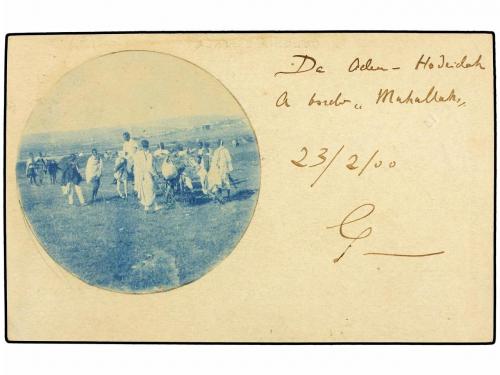 Da Aden - Hodeidah
A bordo „ Mahallah „
23/2/00
G